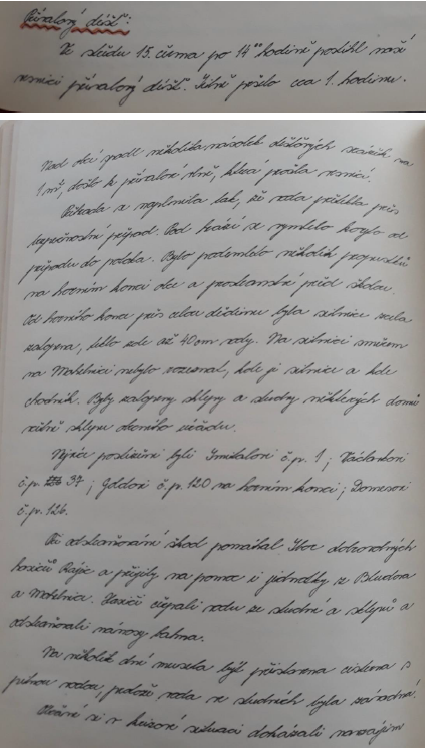 Přívalový déšť:
Ve středu 15. června po 14⁰⁰ hodině postihl naši
vesnici přívalový déšť. Silně pršelo cca 1. hodinu.
Nad obcí spadl několikanásobek dešťových srážek na
1 m², došlo k přívalové vlně, která prošla vesnicí.
se naplnila tak, že voda přetekla přes
bezpečnostní přepad. Pod hrází se vymlelo koryto od
přepadu do potoka. Bylo podemleto několik propustků
na horním konci obce a prostranství před školou.
Od horního konce přes celou dědinu byla silnice zcela
zatopena, teklo zde až 40 cm vody. Na silnici směrem
na Mohelnici nebylo rozeznat, kde je silnice a kde
chodník. Byly zatopeny sklepy a studny některých domů
včetně sklepu obecního úřadu.
Nejvíce postiženi byli č.p. 1; Václavkovi
č.p. 37; č.p. 120 na horním konci;
č.p. 126.
Při odstraňování škod pomáhal Sbor dobrovolných
hasičů Rájec a přijely na pomoc i jednotky ze Bludova
a Mohelnice. Hasiči čerpali vodu ze studní a sklepů a
odstraňovali nánosy bahna.
Na několik dní musela být přistavena cisterna s
pitnou vodou, protože voda ve studnách byla závadná.
Občané si v krizové situaci dokázali navzájem